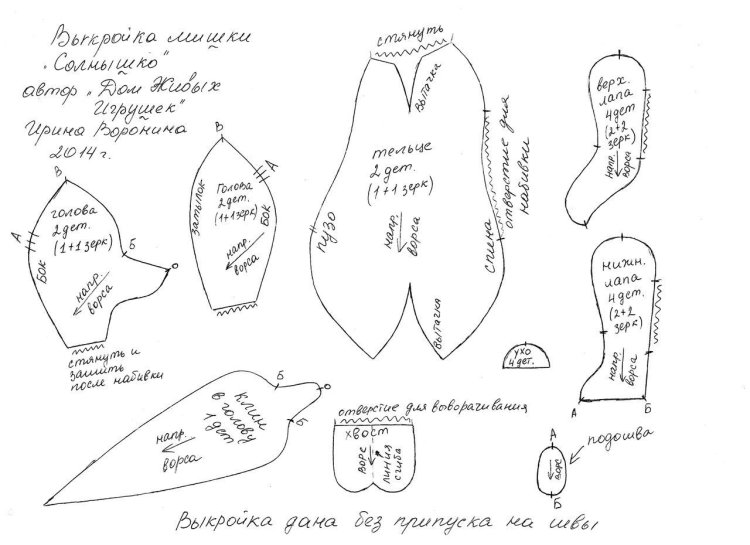 Выкройка мишки
"Солнышко"
автор "Дом Живых
Игрушек"
Ирина Воронина
2014 г.
стянуть
вытачка
тельце
2 дет.
(1+1 зерк)
напр.
ворса
пузо
спина
отверстие для
набивки
вытачка
верх.
лапа
4 дет
(2+2
зерк)
напр.
ворса
В
А
голова
2 дет.
(1+1 зерк)
Бок
Б
о
напр.
ворса
стянуть и
зашить
после набивки
В
А
затылок
Голова
2 дет.
(1+1 зерк)
Бок
напр.
ворса
нижн.
лапа
4 дет.
(2+2
зерк)
напр.
ворса
А
Б
ухо
4 дет.
Б
о
Б
клин
в голову
1 дет
напр.
ворса
отверстие для выворачивания
хвост
ворс
линия
сгиба
подошва
А
ворс
Б
Выкройка дана без припуска на швы